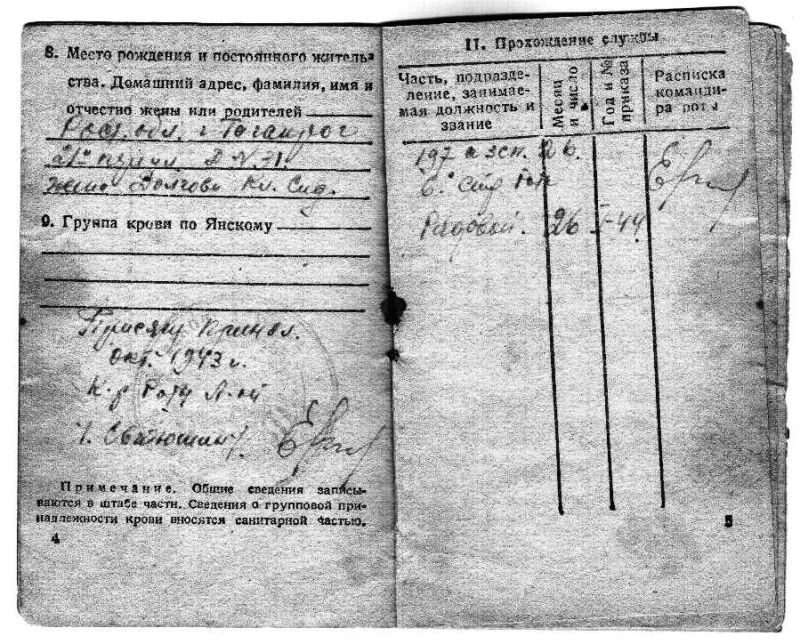 8. Место рождения и постоянного житель-
ства. Домашний адрес, фамилия, имя и
отчество жены или родителей
Рост. обл. г. Таганрог
21й Д. № 71.
жена Долгова Кл. Сид.
9. Группа крови по Янскому
Присягу принял.
окт. 1943 г.
К-р Роты Л-т
Примечание. Общие сведения записы-
ваются в штабе части. Сведения о групповой при-
надлежности крови вносятся санитарной частью.
4
II. Прохождение службы
Часть, подразде-
ление, занимае-
мая должность и
звание
Месяц
и число
Год и №
приказа
Расписка
команди-
ра роты
197 а зсп. 26.
6. стр рот
Рядовой. 26 I-44
5